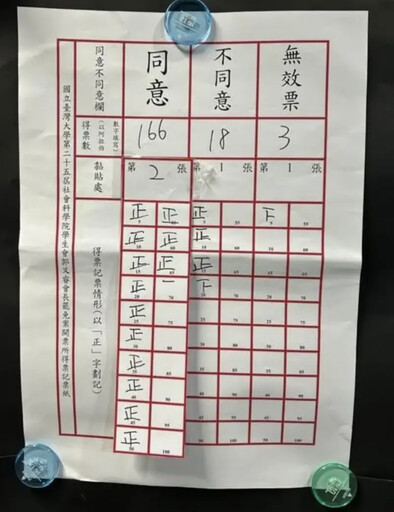 國立臺灣大學第二十五屆社會科學院學生會郭又容會長罷免案開票所得票記票紙
同意不同意欄
同意
不同意
無效票
得票數
(以阿拉伯
數字填寫)
166
18
3
黏貼處
第 2 張
第 1 張
第 1 張
得票記票情形(以「正」字劃記)
正 正 正 下
正 正 正
正 正 正
正 一 下
正
正
正
正
正
正